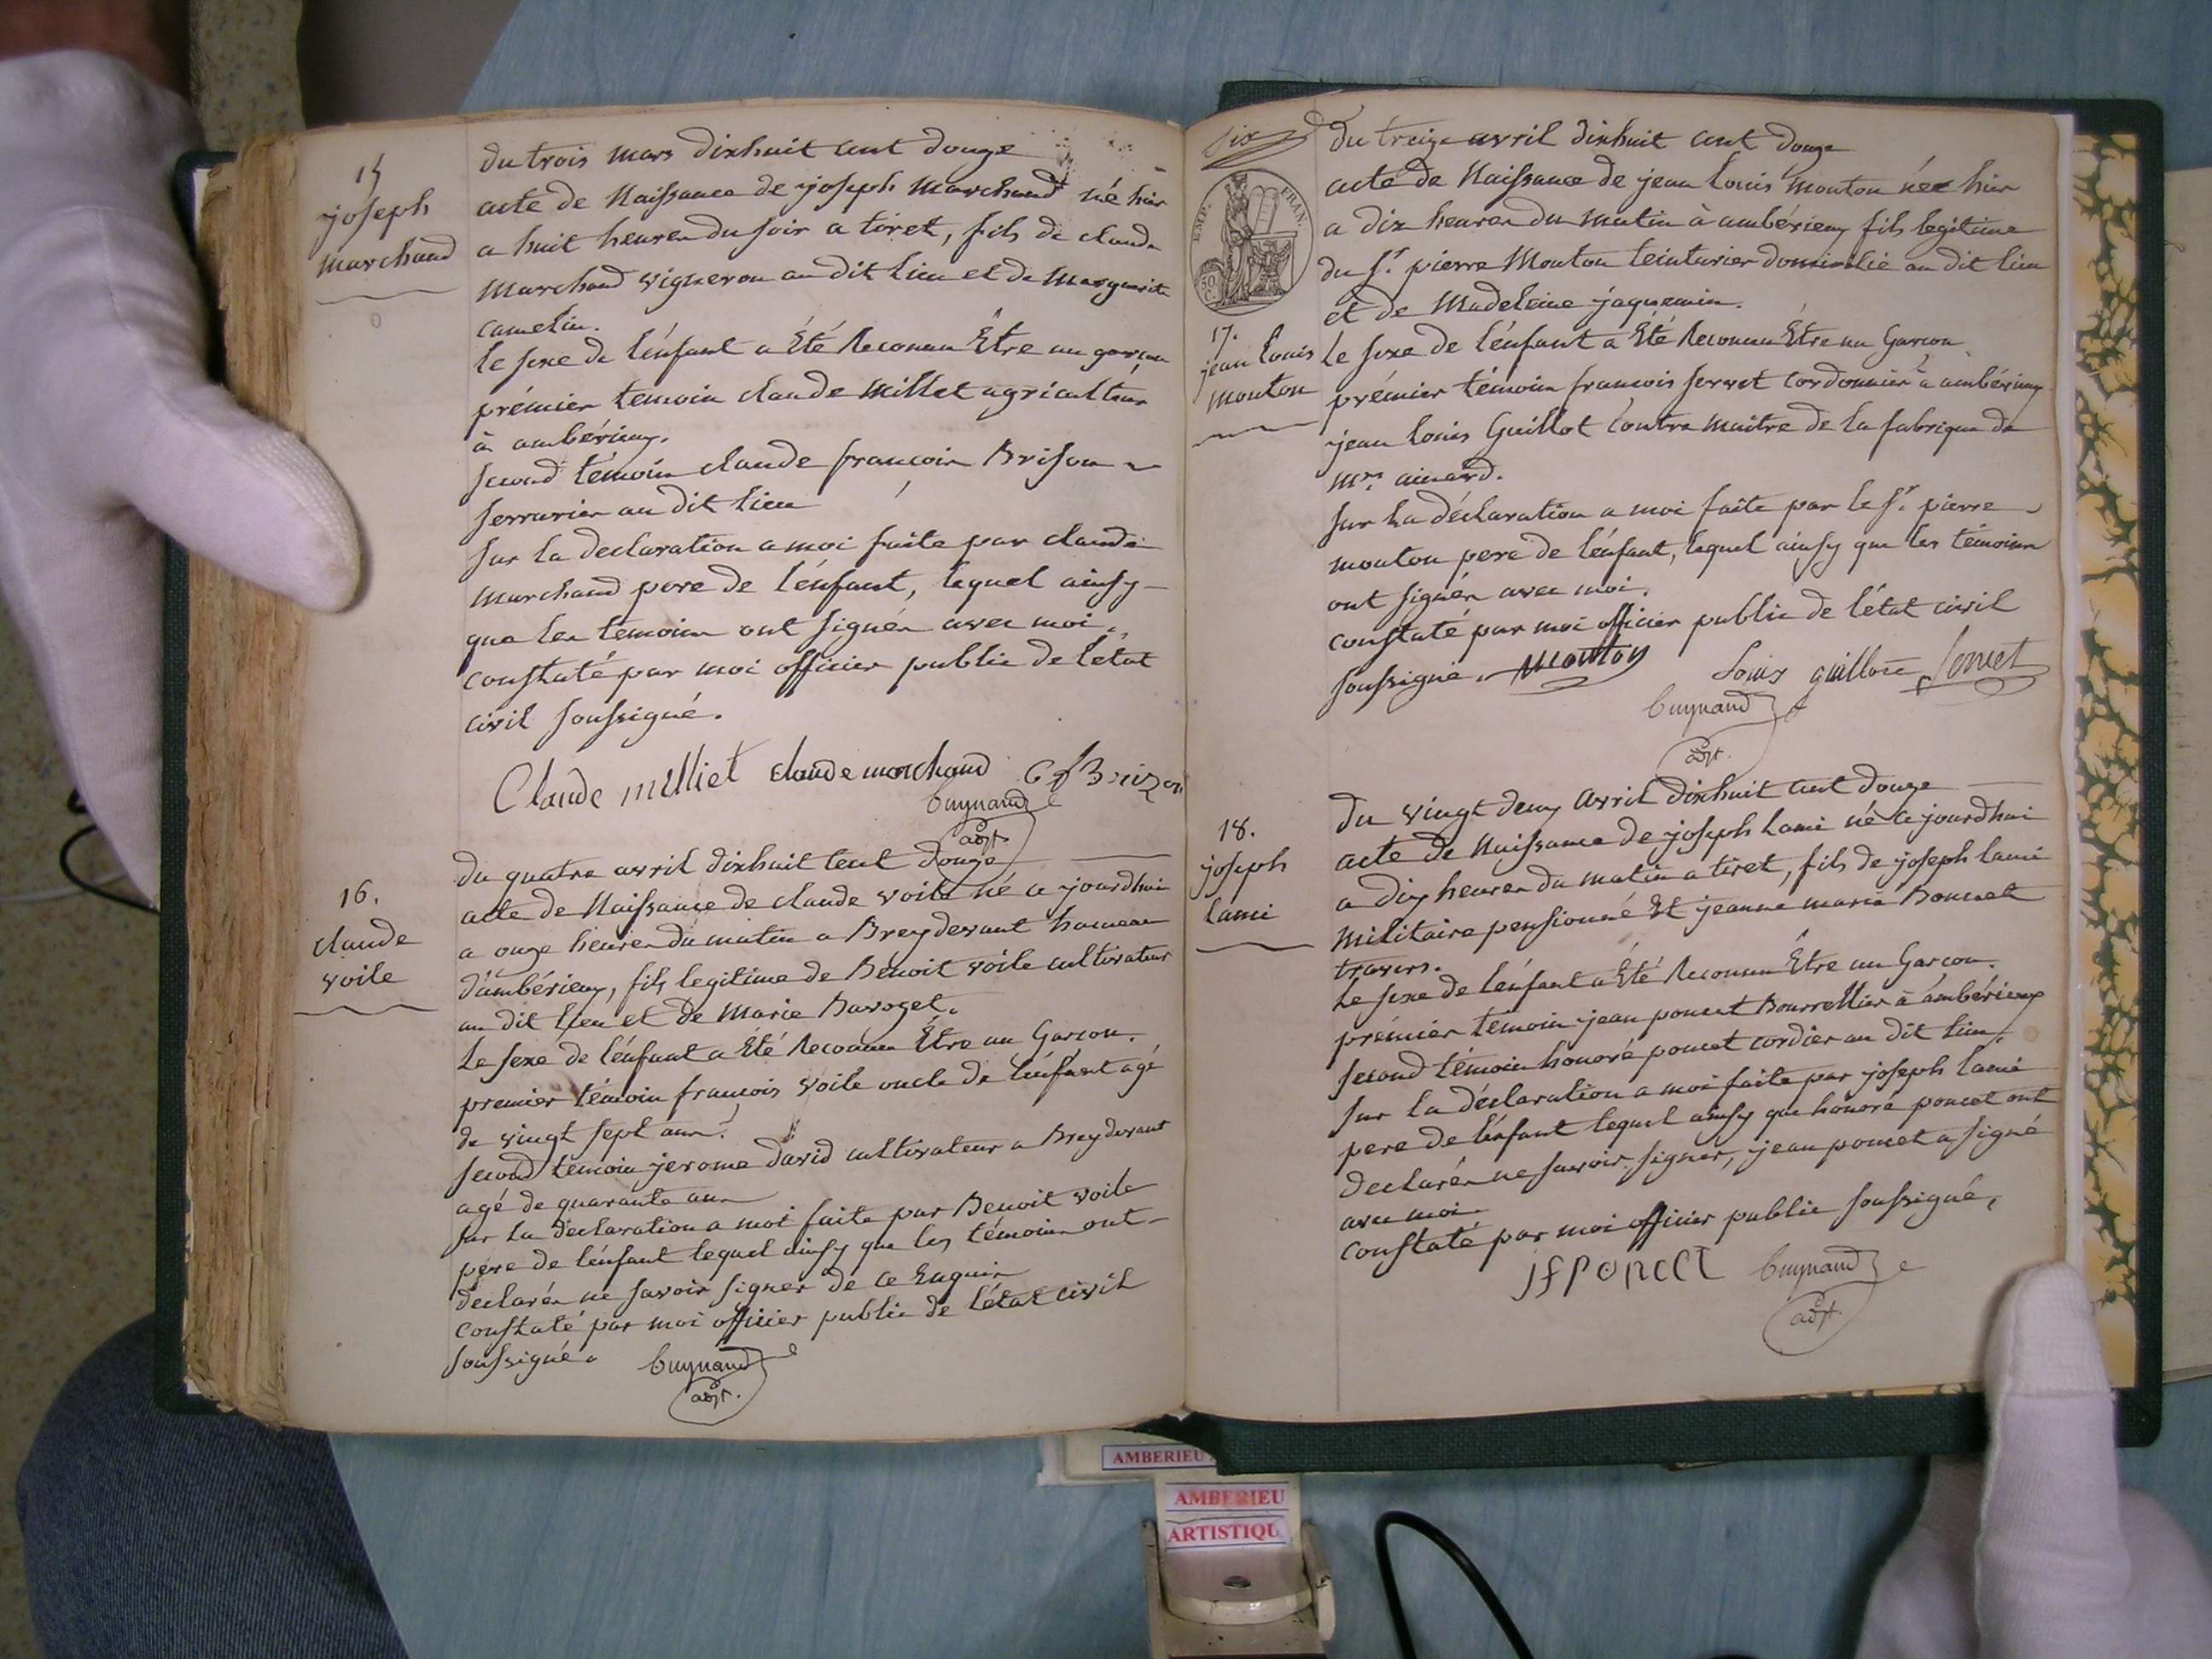 15
joseph
marchand
du trois mars dixhuit cent douze
acte de Naissance de joseph Marchand né hier
a huit heures du soir a tiret, fils de claude
Marchand vigneron au dit lieu et de Marguerite
camelin.
le sexe de l'énfant a Été Reconnu Être un garçon
prémier temoin claude Millet agriculteur
à ambérieux.
second témoin claude françois Brison
serrurier au dit lieu
sur la declaration a moi faite par claude
Marchand pere de l'énfant, lequel ainsy
que les temoins ont signés avec moi.
constaté par moi officier public de l'état
civil soussigné.
Claude milliet claude marchand C f Brizon
Cuynand
adjt
16.
claude
voile
du quatre avril dixhuit cent douze
acte de Naissance de claude voile né ce jourdhui
a onze heures du matin a Breydevant hameau
d'ambérieux, fils legitime de Benoit voile cultivateur
au dit lieu et de Marie Bavozet.
Le sexe de l'énfant a Été Reconnu Être un Garcon.
premier témoin françois voile oncle de l'énfant agé
de vingt sept ans.
second temoin jerome david cultivateur a Breydevant
agé de quarante ans
sur la declaration a moi faite par Benoit voile
pere de l'énfant lequel ainsy que les témoins ont
declarés ne savoir signer de ce Enquis
constaté par moi officier public de l'état civil
soussigné.
Cuynand
adjt.
six
EMP. FRAN.
50 C.
17.
jean louis
mouton
du treize avril dixhuit cent douze
acte de Naissance de jean louis Mouton née hier
a dix heures du matin à ambérieux fils legitime
du Sr. pierre Mouton teinturier domicilié au dit lieu
et de Madeleine jaquemin.
le sexe de l'énfant a Été Reconnu Être un Garcon
prémier témoin francois servet cordonnier à ambérieux
jean louis Guillot contre maitre de la fabrique de
Mrs. ainard.
sur La déclaration a moi faite par le Sr. pierre
mouton pere de l'énfant, lequel ainsy que les témoins
ont signés avec moi.
constaté par moi officier public de l'état civil
soussigné. Mouton Louis guillot Servet
Cuynand
adjt.
18.
joseph
Lami
du vingt deux avril dixhuit cent douze
acte de Naissance de joseph Lami né ce jourdhui
a dix heures du matin a tiret, fils de joseph lami
militaire pensionné Et jeanne marie Bonnet
travers.
Le sexe de l'énfant a Été Reconnu Être un Garcon.
prémier témoin jean poncet Bourrellier à ambérieux
second témoin honoré poncet cordier au dit lieu.
sur la déclaration a moi faite par joseph lami
pere de l'énfant lequel ainsy que honoré poncet ont
declarés ne savoir signer, jean poncet a signé
avec moi
constaté par moi officier public soussigné,
jf poncet Cuynand
adjt.
AMBERIEU
AMBERIEU
ARTISTIQU